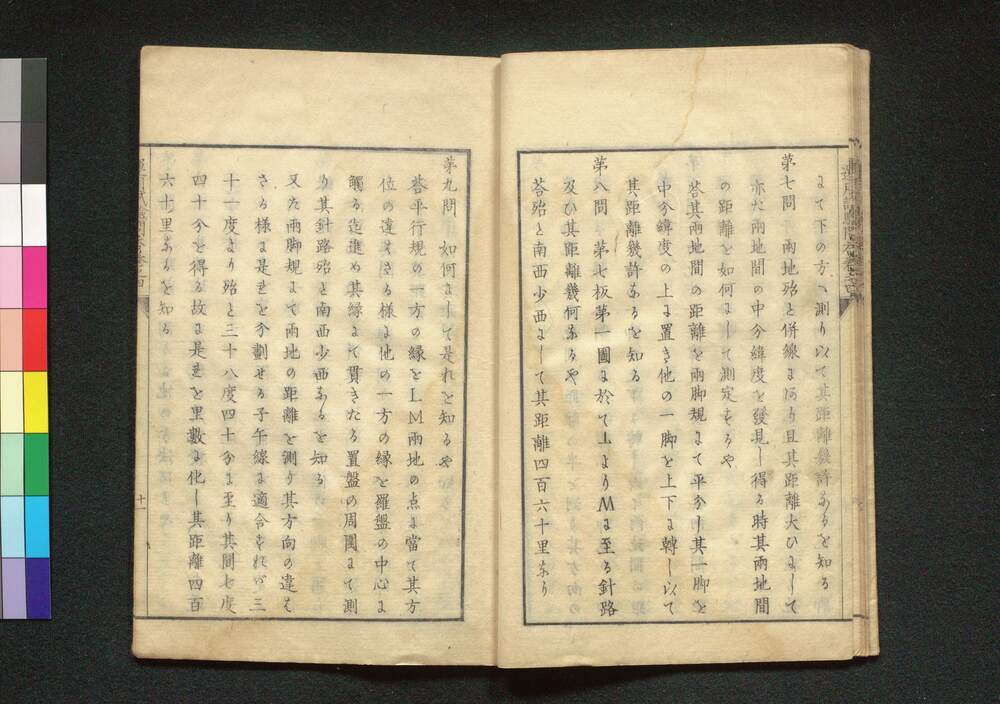 まて下の方へ測り以て其距離幾許あるを知る
第七問　両地殆と併線にあり且其距離大ひにして
亦た両地間の中分緯度を發見し得る時其両地間
の距離を如何にして測定をるや
答其両地間の距離を両脚規にて平分し其一脚を
中分緯度の上に置き他の一脚を上下に轉し以て
其距離幾許あるを知る
第八問　第七板第一圖に於て上よりMに至る針路
及ひ其距離幾何あるや
答殆と南西少西にして其距離四百六十里あり
第九問　如何にして是れを知るや
答平行規の一方の縁をLM両地の点に當て其方
位の違はさる様に他の一方の縁を羅盤の中心に
觸る迄進め其縁にて貫きたる置盤の周圍にて測
り其針路殆と南西少西あるを知る
又た両脚規にて両地の距離を測り其方向の違は
さる様に是れを分劃せる子午線に適合をれば三
十一度より殆と三十八度四十分に至り其間七度
四十分を得る故に是れを里數に化し其距離四百
六十里あるを知る
十一